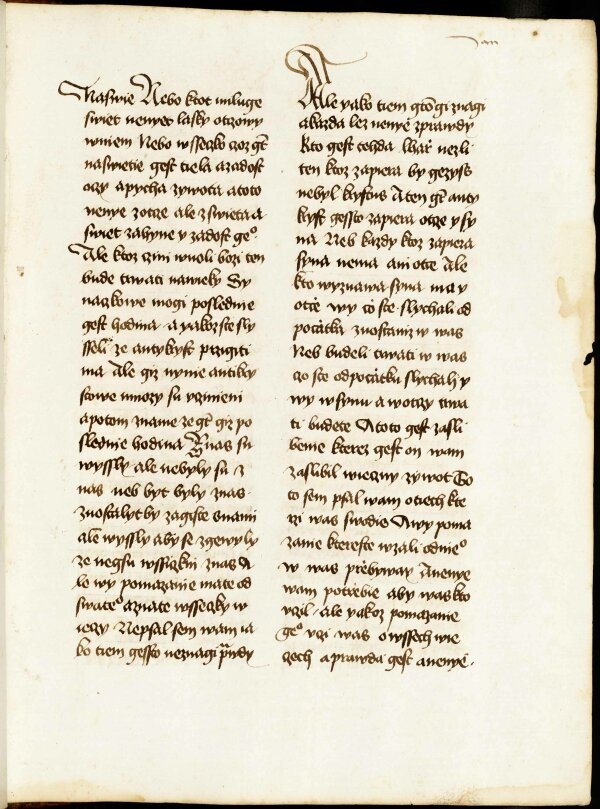 Jan
Naswie Nebo ktot miluge
swiet nenyet lasky otczowy
wniem Nebo wsseczko czoz gt
naswietie gest tiela a zadost
oczy a pycha zywota a toto
nenye zotcze ale zswieta a
swiet zahyne y zadost geo.
Ale ktoz czini wuoli bozi ten
bude trwati nawieky Sy
naczkowe mogi poslednie
gest hodina a yakozste sly
sseli ze antykrst przigiti
ma Ale giz nynie antikry
stowe mnozy su vczinieni
a potom zname ze gt giz po
slednie hodina Znas su
wyssly ale nebyly su z
nas neb byt byly znas
zuostalyt by zagiste snami
ale wyssly aby se zgewyly
ze negsu wssiczkni znas A
le wy pomazanie mate od
swateo a znate wsseczky w
ieczy Nepsal sem wam ia
ko tiem gessto neznagi prawdy
Ale yako tiem gtogi znagi
a kazda lez nenye zprawdy
Kto gest tehda lharz nezli
ten ktoz zapiera by gezyss
nebyl krystus A ten gt anty
kryst gessto zapiera otcze y sy
na Neb kazdy ktoz zapiera
syna nema ani otcze Ale
kto wyznawa syna ma y
otcze wy czo ste slychali od
poczatka zuostaniz w was
Neb budeli trwati w was
czo ste odpoczatku slychali y
wy wsynu a wotczy trwa
ti budete A toto gest zasli
benie kterez gest on wam
zaslibil wieczny zywot To
to sem psal wam o tiech kte
rzi was swodie A wy poma
zanie ktereste wzali odnieo
w was przebyway A nenye
wam potrzebie aby was kto
vczil Ale yakoz pomazanie
geo vczi was o wssech wie
czech a prawda gest a nenye